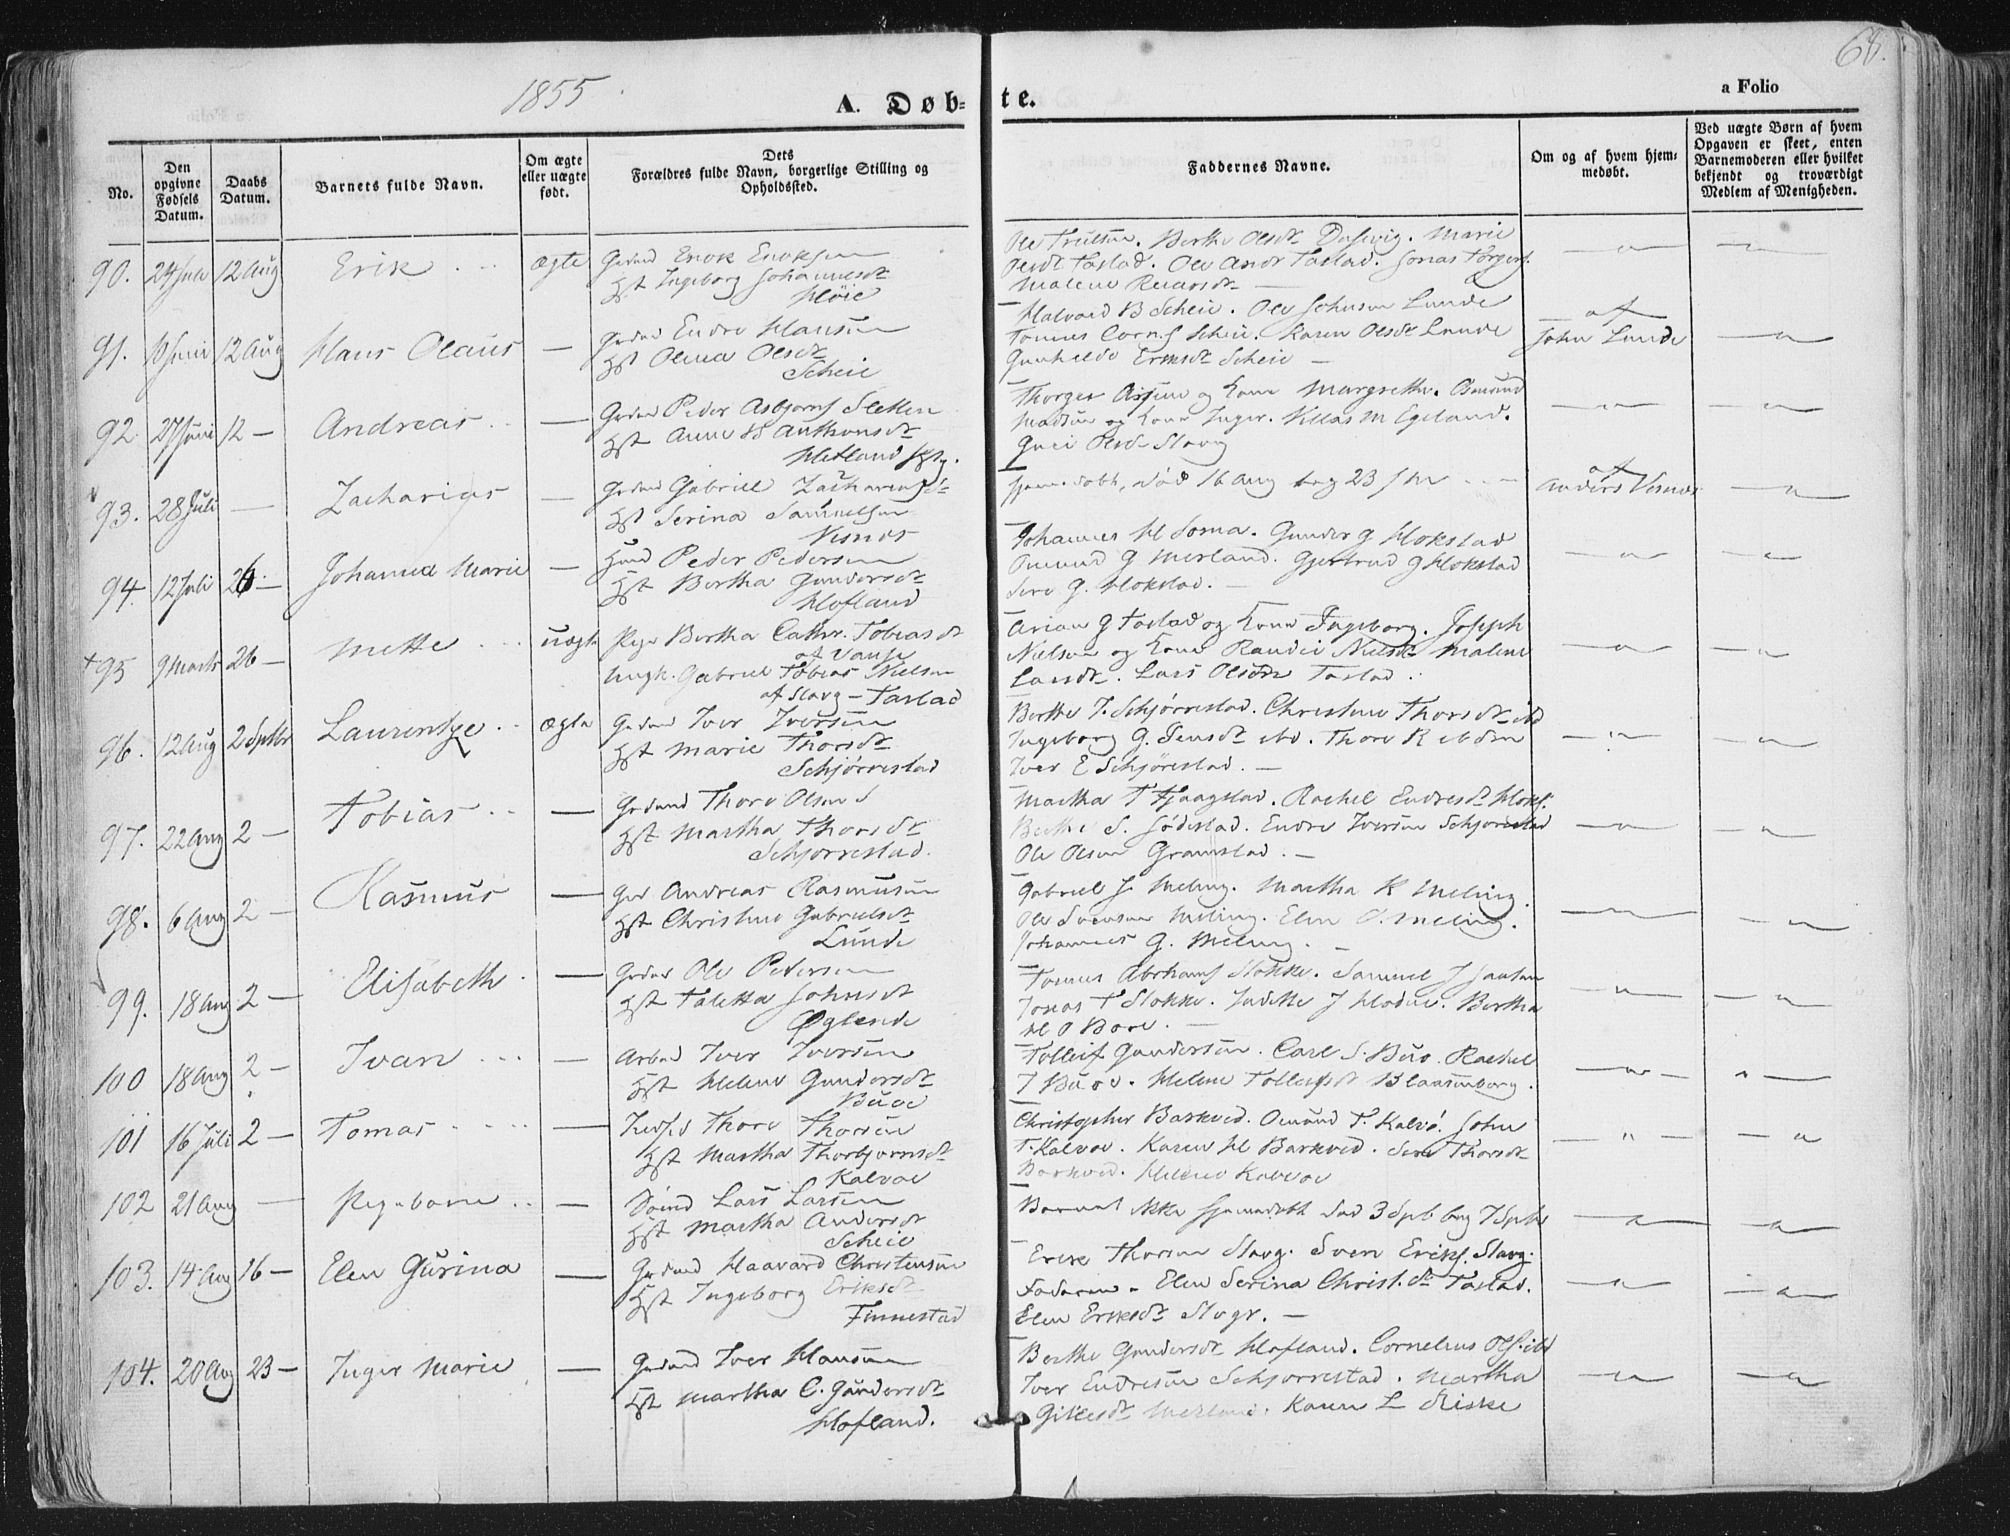 1855
68.
A. Døb-te.
a Folio
No.
Den opgivne Fødsels Datum.
Daabs Datum.
Barnets fulde Navn.
Om ægte eller uægte født.
Dets Forældres fulde Navn, borgerlige Stilling og Opholdssted.
Faddernes Navne.
Om og af hvem hjemmedøbt.
Ved uægte Børn af hvem Opgaven er skeet, enten Barnemoderen eller hvilket bekjendt og troværdigt Medlem af Menigheden.
90. 24 Juli 12 Aug Erik ægte Grdmd Enok Enoksen
Hst Ingeborg Johannesdr
Høie
Ole Trulsen. Berthe Olsdr Dusevig. Marie
Olsdr Tastad. Ole Andr Tastad. Jonas Torgers.
Malene
91. Juni 12 Aug Hans Olaus — Grdmd Endre Hansen
Hst Olena Olsdr
Scheie
Halvard B Scheie. Ole Johnsen Lunde
Tonnes Corns Scheie. Karen Olsdr Lunde
Gunhilde Eriksdr Scheie —
af
John Lunde
92 27 Juni 12 — Andreas — Grdmd Peder Asbjørns Sletten
Hst Anne Anthonsdr
Hetland
Thorger Assen og Kone Margrethe. Osmund
Madsen og Kone Inger. Killas M Egeland.
Guri Olsdr Slavg
93. 28 Juli — Zacharias — Grdmd Gabriel Zachariasen
Hst Serina Samuelsen
Visnes
hjemmedøbt, død 16 Aug beg 23
af
Anders Visnes
94. 12 Juli 26 — Johanna Marie — Hmd Peder Pedersen
Hst Bertha Gundersdr
Hofland
Johannes H Soma. Gunder G Hokstad
Omund G Merland. Gjertrud G Hokstad
Sere G. Hokstad. —
+95 9 Marts 26 — Mette uægte Pige Bertha Cathr. Tobiasdr
af Vanse
Ungk. Gabriel Tobias Nielsen
af Slavg — Tastad
Arian G Tastad og Kone Ingeborg. Joseph
Nielsen og Kone Randie Nielsdr Malene
Larsdr. Lars Olsen Tastad.
96. 12 Aug 2 Sptbr Laurentze ægte Grdmd Iver Iversen
Hst Marie Thorsdr
Schjørrestad
Berthe T. Schjørrestad. Christine Thorsdr ibd
Ingeborg G. Jensdr ibd. Thore R ibden
Iver E Schjørestad. —
97. 22 Aug 2 — Tobias — Grdmd Thore Olsen S
Hst Martha Thorsdr
Schjørrestad.
Martha T Tjaagstad. Rachel Endresdr Hoks.
Berthe S. Jødestad. Endre Iversen Schjørestad
Ole Olsen Gramstad. —
98. 6 Aug 2 — Rasmus — Grd Andreas Rasmusen
Hst Christine Gabrielsdr
Lunde
Gabriel J. Meling. Martha K Meling.
Ole Svensen Meling. Elen O. Meling.
Johannes G. Meling. —
99. 18 Aug 2 — Elisabeth — Grdmd Ole Pedersen
Hst Taletta Johnsdr
Øglende
Tonnes Abrhams Stokke. Samuel J
Jonas T Stokke. J Hodne. Bertha
Bore. —
100 18 Aug 2 — Ivar — Arbmd Iver Iversen
Hst Helene Gundersdr
Buøe
Tolleif Gundersen. Carl S. Buø. Rachel
T Buøe. Helene Tollefsdr Blaasenborg.
101 16 Juli 2 — Tomas — Thore Thorsen
Hst Martha Thorbjørnsdr
Kalvøe
Christopher Barkved. Omund T. Kalvø. John
T. Kalvøe. Karen H Barkved. Siri Thorsdr
Barkved. Helene Kalvøe
102 21 Aug — Pigebarn — Lars Larsen
Hst Martha Andersdr
Scheie
Barnet ikke hjemmedøbt død 3 Sptb beg 7 Sptbr
103. 14 Aug 16 — Elen Gurina — Grdmd Haavard Christensen
Hst Ingeborg Eriksdr
Finnestad
Erik Thorsen Slavg. Sven Eriks. Slavg.
Faderen. Elen Serina Christ.dr Tastad.
Elen Eriksdr Slogv. —
104. 20 Aug 23 — Inger Marie — Grdmd Iver Hansen
Hst Martha C. Gundersdr
Hofland.
Berthe Gundersdr Hofland. Cornelius Ols. ibd
Iver Endresen Schjørrestad. Martha
Gitlesdr Merland. Karen L Riske